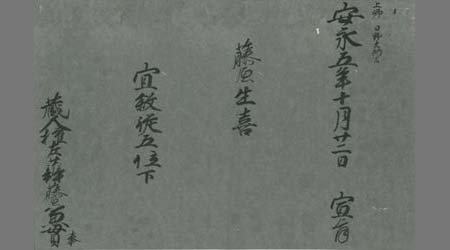 上卿 日野大納言
安永五年十月廿二日 宣旨
藤原生喜
宜敍従五位下
蔵人権左少弁藤原 奉